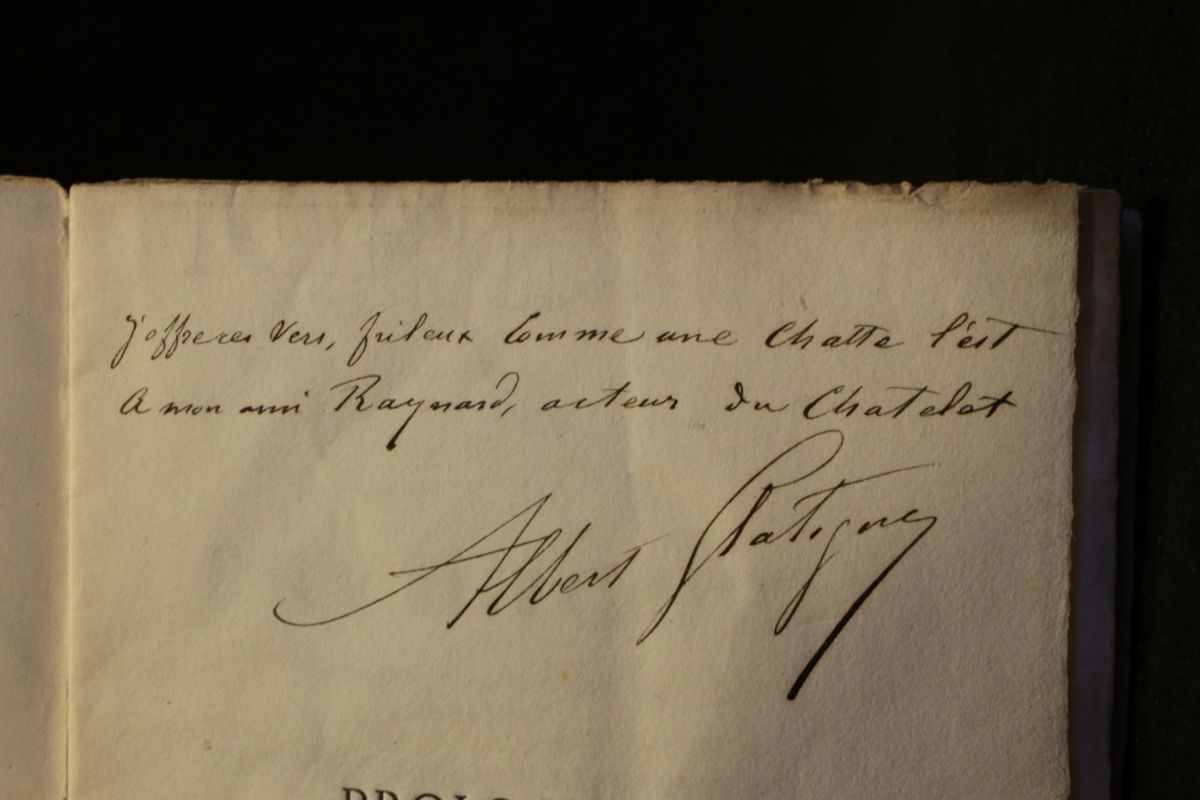 j'offre ces vers, frileux comme une Chatte l'est
A mon ami Raynard, acteur du Chatelet
Albert Glatigny
PROLO